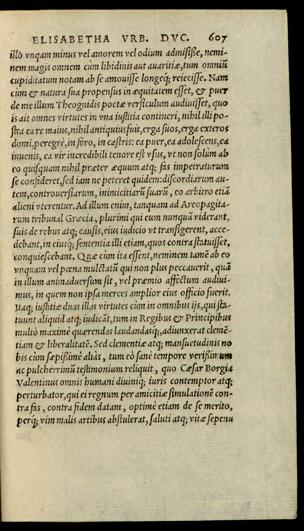 ELISABETHA VRB. DVC. 607
illo vnqam minus vel amorem vel odium admisisse, nemi-
nem magis omnem cùm libidinis aut auaritiæ, tum omniũ
cupiditatum notam ab se amouisse longeq; reiecisse. Nam
cùm & natura sua propensus in æquitatem esset, & puer
de me illum Theognidis poetæ versiculum audiuisset, quo
is ait omnes virtutes in vna iustitia contineri, nihil illi po-
stea ea re maius, nihil antiquius fuit, erga suos, erga exteros
domi, peregrè, in foro, in castris: ea puer, ea adolescens, ea
iuuenis, ea vir incredibili tenore est vsus, vt non solùm ab
eo quisquam nihil præter æquum atq; fas impetraturum
se consideret, sed iam ne peteret quidem: discordiarum au-
tem, controuersiarum, inimicitiarũ suarũ, eo arbitro etiã
alieni vterentur. Ad illum enim, tanquam ad Areopagita-
rum tribunal Græcia, plurimi qui eum nunquã viderant,
suis de rebus atq; causis, eius iudicio vt transigerent, acce-
debant, in eiusq; sententia illi etiam, quos contra statuisset,
conquiescebant. Quæ cùm ita essent, neminem tamẽ ab eo
vnquam vel pœna mulctatũ qui non plus peccauerit, quã
in illum animaduersum sit, vel præmio affectum audiui-
mus, in quem non ipsa merces amplior eius officio fuerit.
Itaq; iustitiæ duas illas virtutes cùm in omnibus ijs, qui sta-
tuunt aliquid atq; iudicãt, tum in Regibus & Principibus
multò maximè quærendas laudandasq; adiunxerat clemẽ-
tiam & liberalitatẽ. Sed clementiæ atq; mansuetudinis no
bis cùm sæpissimè aliàs, tum eo sanè tempore verissimum
ac pulcherrimũ testimonium reliquit, quo Cæsar Borgia
Valentinus omnis humani diuiniq; iuris contemptor atq;
perturbator, qui ei regnum per amicitiæ simulationẽ con-
tra fas, contra fidem datam, optimè etiam de se merito,
perq; vim malis artibus abstulerat, saluti atq; vitæ sepenu